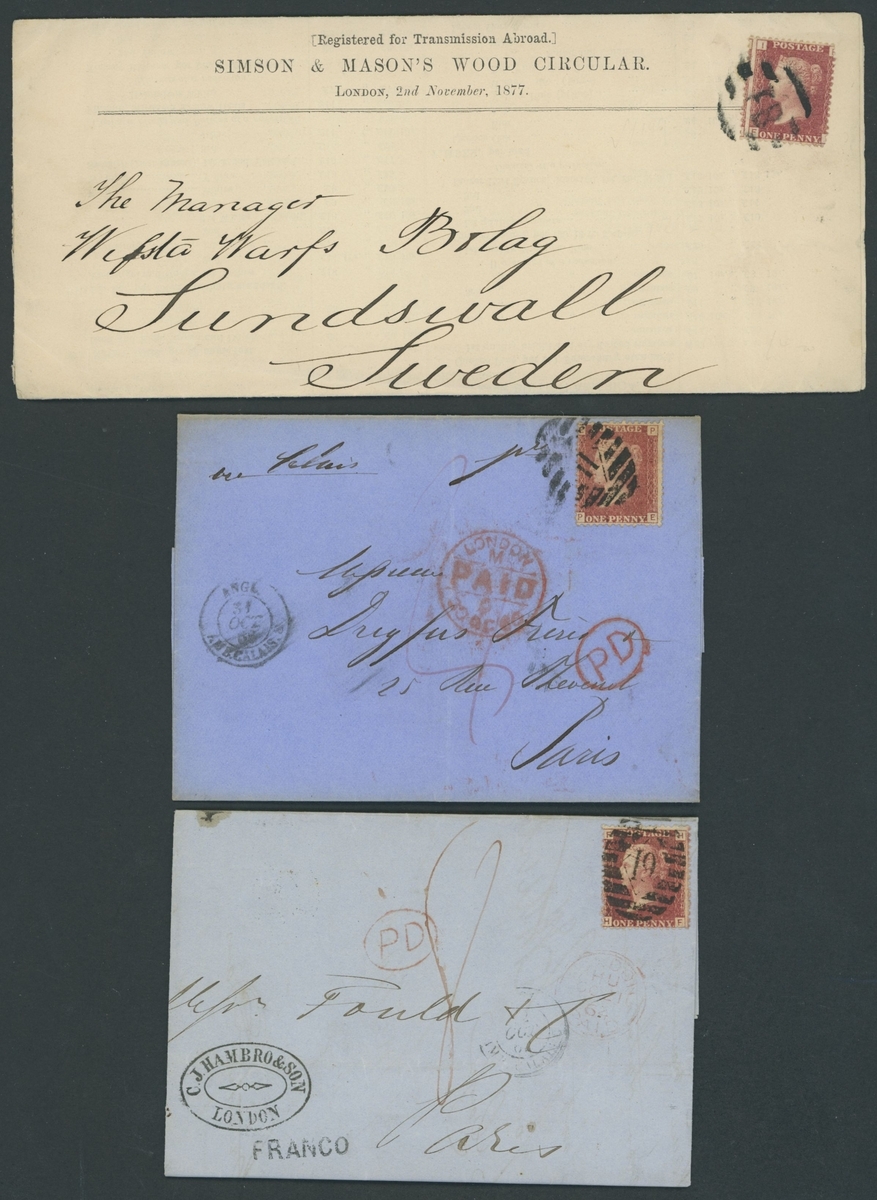 [Registered for Transmission Abroad.]
SIMSON & MASON'S WOOD CIRCULAR.
LONDON, 2nd November, 1877.
POSTAGE
ONE PENNY
The Manager
Wifsta Warfs Bolag
Sundswall
Sweden
via Calais
POSTAGE
P E
ONE PENNY
LONDON
M
PAID
ANGL.
31
OCT
AMB.CALAIS
Messieurs
Dreyfus Frères
25 Rue
PD
Paris
POSTAGE
19
H F
ONE PENNY
PD
Messrs Fould & C
C.J. HAMBRO & SON
LONDON
FRANCO
Paris